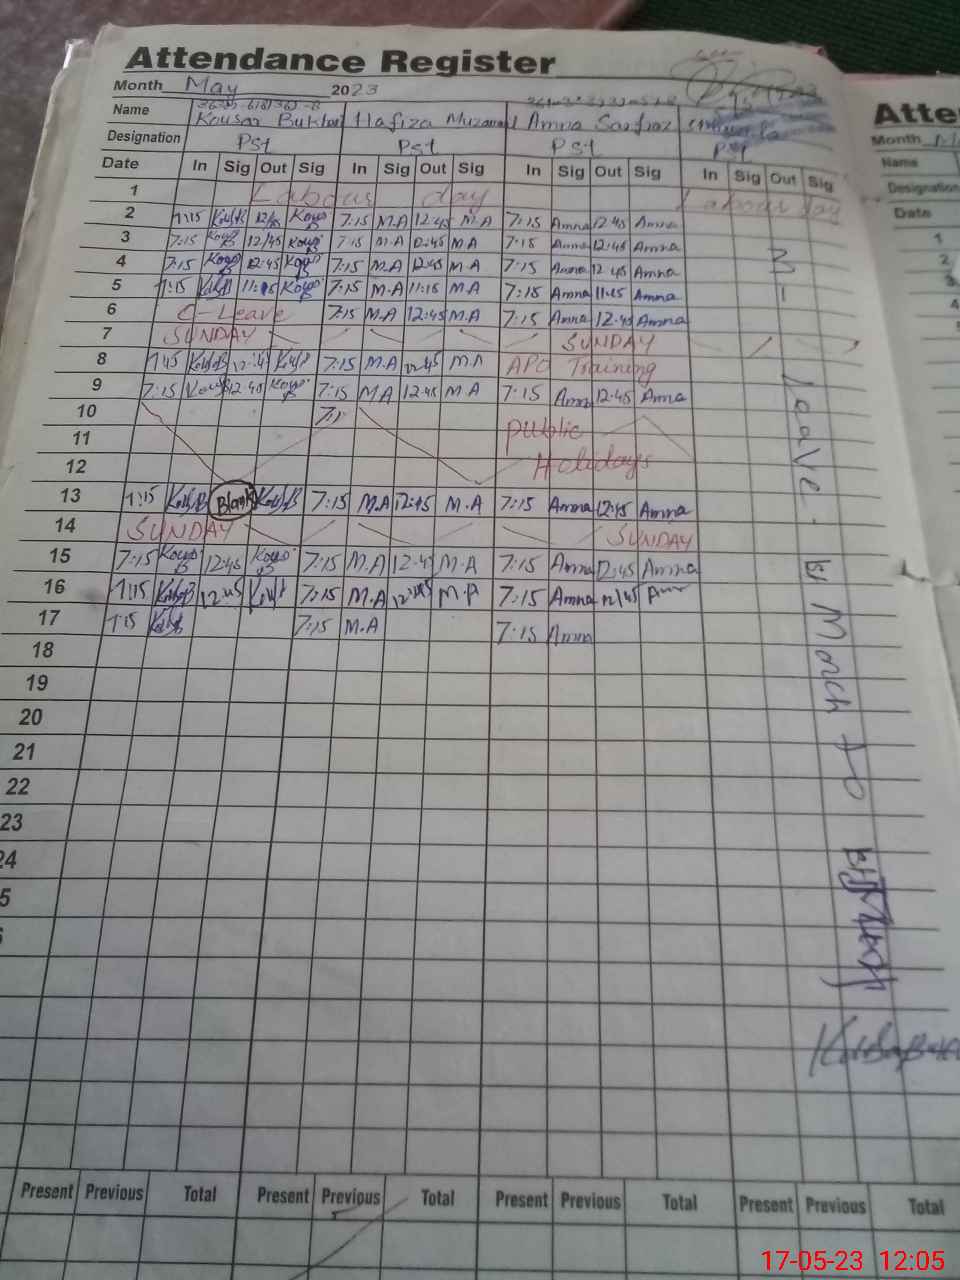 Attendance Register
Month May 2023
Name Kousar Bukhari Hafiza Muzammil Amna Sarfraz
Designation Pst Pst Pst Pst
Date In Sig Out Sig In Sig Out Sig In Sig Out Sig In Sig Out Sig
1 Labour day Labour day
2 7:15 12/45 7:15 M.A 12:45 M.A 7:15 Amna 12:45 Amna
3 7:15 12/45 7:15 M.A 12:45 M.A 7:15 Amna 12:45 Amna
4 7:15 12:45 7:15 M.A 12:45 M.A 7:15 Amna 12 45 Amna
5 7:15 11:15 7:15 M.A 11:15 M.A 7:15 Amna 11:15 Amna
6 C-Leave 7:15 M.A 12:45 M.A 7:15 Amna 12:45 Amna
7 SUNDAY SUNDAY
8 7:15 M.A 12:45 M.A APO Training
9 7:15 12:45 7:15 M.A 12:45 M.A 7:15 Amna 12:45 Amna
10
11 public
12 Holidays
13 7:15 Blank 7:15 M.A 12:45 M.A 7:15 Amna 12:45 Amna
14 SUNDAY SUNDAY
15 7:15 12:45 7:15 M.A 12:45 M.A 7:15 Amna 12:45 Amna
16 7:15 12:45 7:15 M.A 12:45 M.A 7:15 Amna 12/45
17 7:15 7:15 M.A 7:15 Amna
18
19
20
21
22
23
24
5
Leave
March to
Present Previous Total Present Previous Total Present Previous Total Present Previous Total
Atte
Month
Name
Designation
Date
1
2
3
17-05-23 12:05